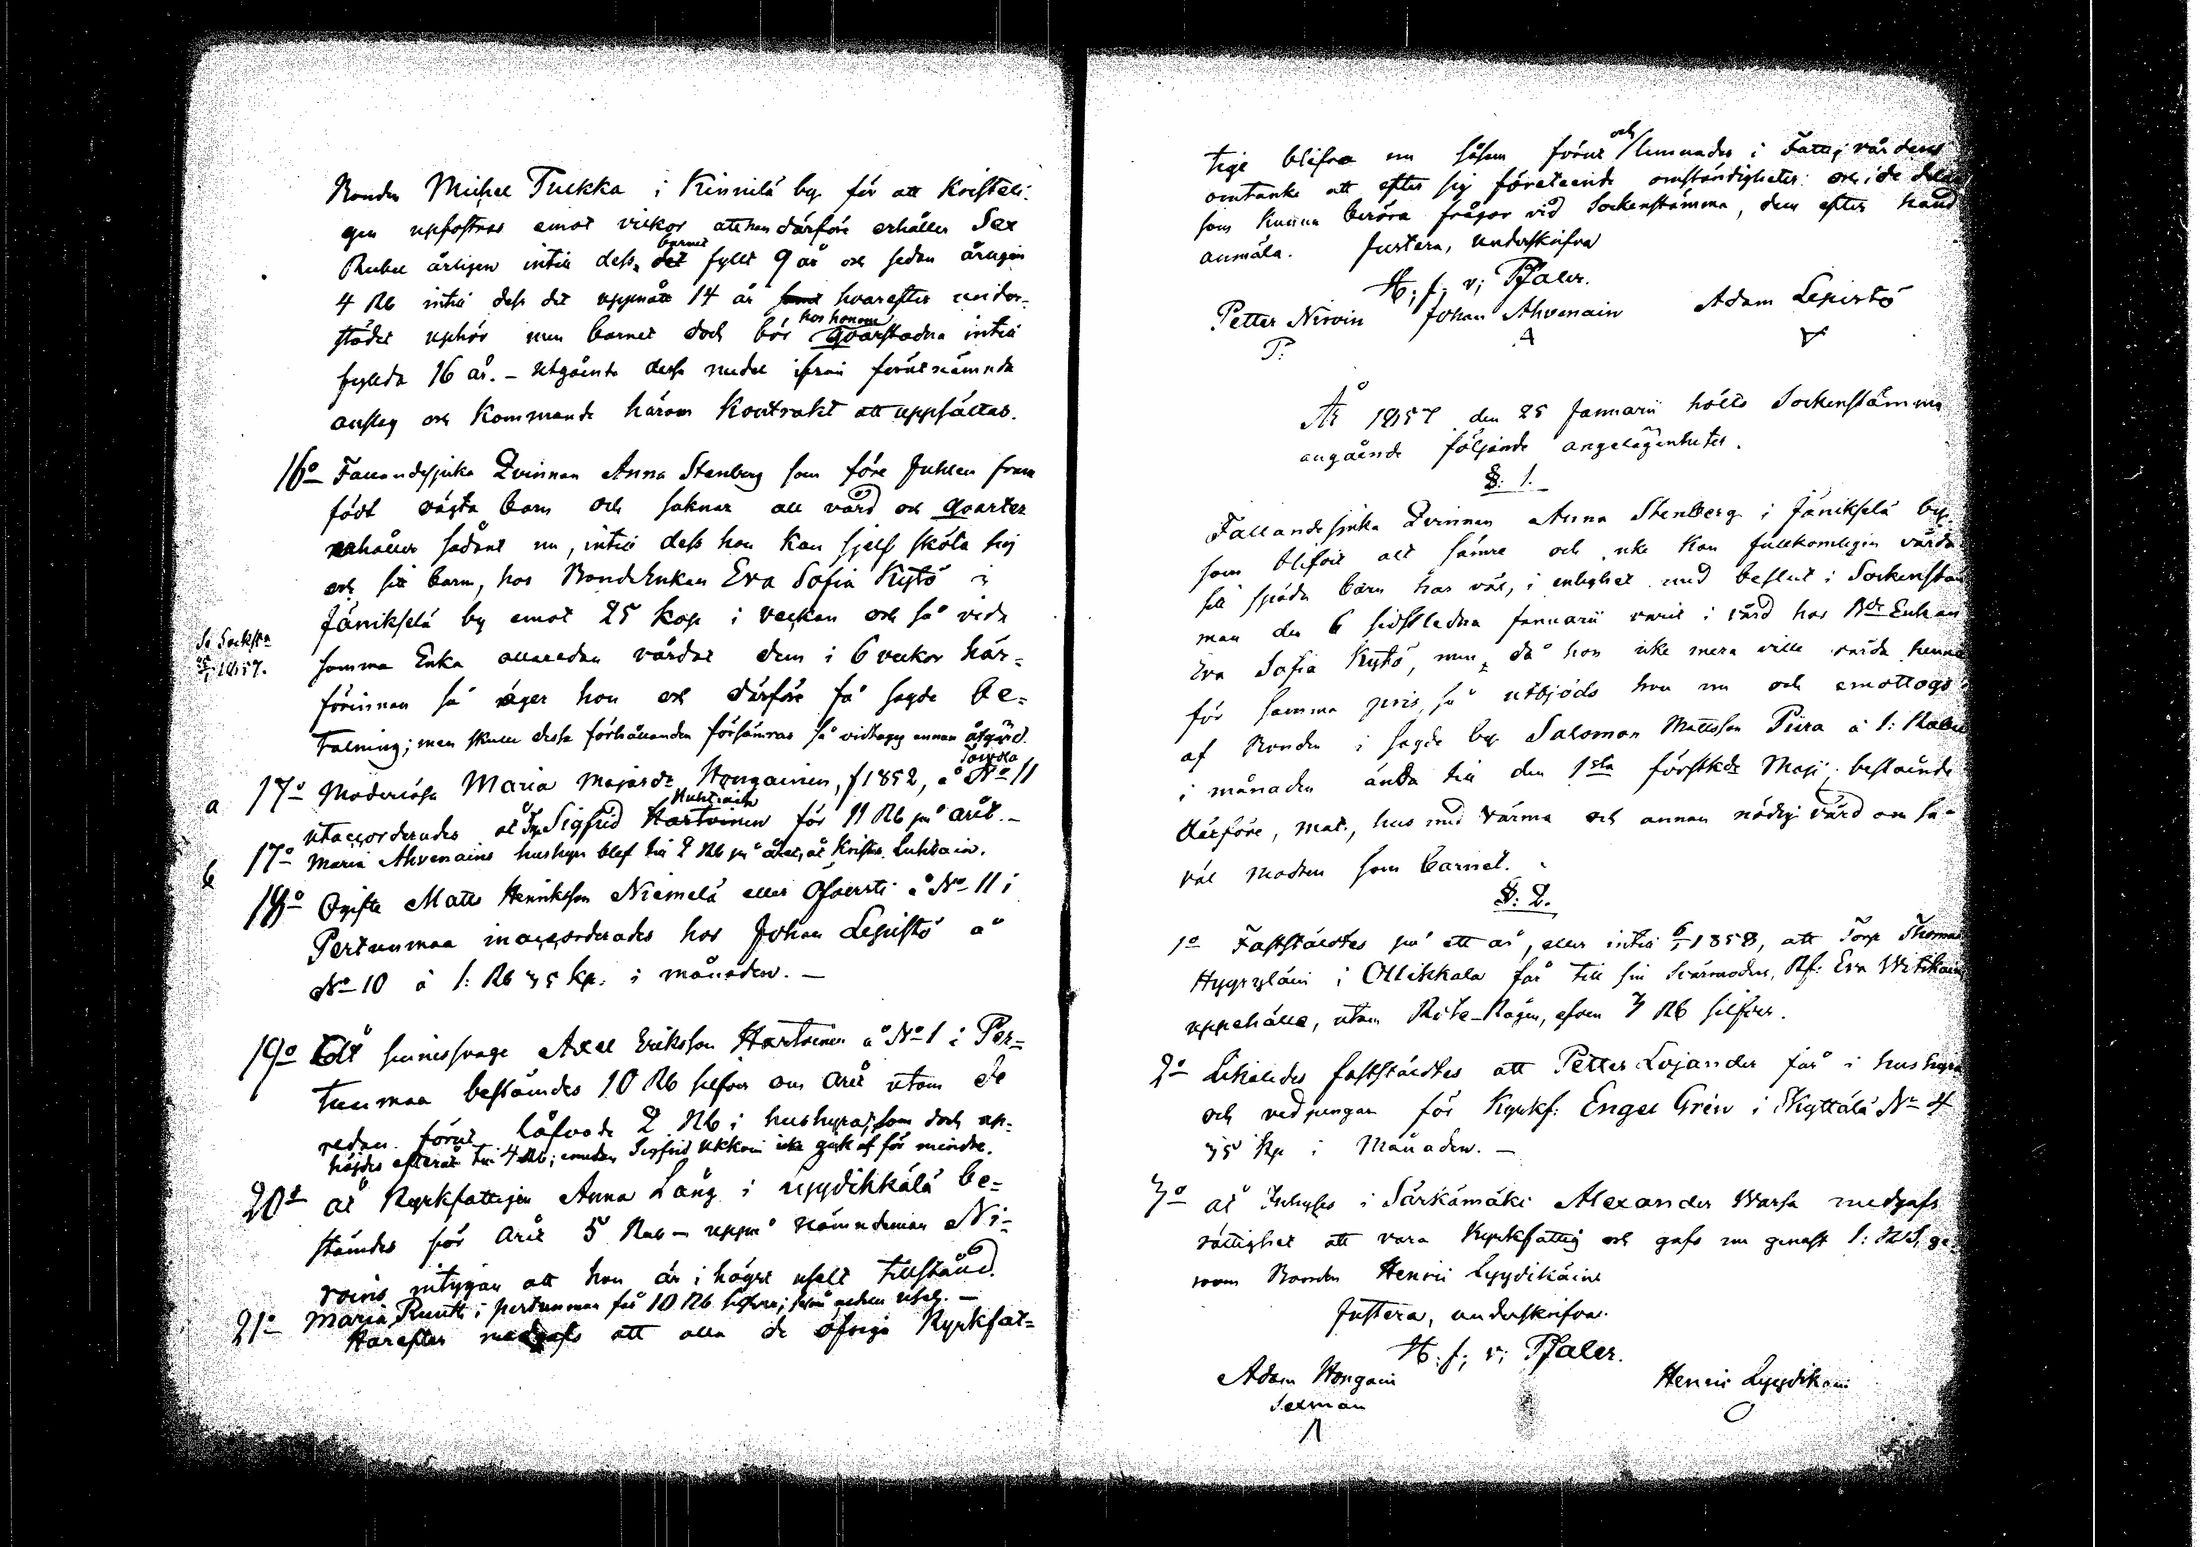 Bonden Michel Tuckka i Kinnilä by för att Kristeli-
gen uppfostras emot vilkor att han därföre erhåller Sex
Rubel årligen intill dess barnet fyllt 9 år och sedan årligen
4 Rb intill dess det uppnått 14 år hvarefter under-
stödet uphör men barnet dock bör hos honom qvarstadna intill
fyllda 16 år. – Utgående dessa medel ifrån förutnämnda
anslag och Kommande härom Kontrakt att uppsättas.
16o Fallandesjuka Qvinnan Anna Stenberg som före Juhlen fram
födt oägta barn och saknar all vård och qvarter
erhåller sådant nu, intill dess hon kan sjelf sköta sig
och sitt barn, hos BondeEnkan Eva Sofia Kytö i
Jänikselä by emot 25 kop i veckan och så vida
Se Sockst:a 25/1 1857.
samma Enka allaredan vårdat dem i 6 veckor här-
förinnan så äger hon och därföre få sagde be-
talning; men skulle dessa förhållanden försämras så vidtages annan åtgärd.
a 17o Moderlösa Maria Majasdr Hongainen, f 1852, å No 11
utackorderades åt Sigfrid Huhtiain för 11 Rb på året. –
b 17o Maria Ahvenains hushyra blef till 2 Rb på året, åt Krister Luhtain.
18o Ogifte Matts Henriksson Niemelä eller Ofversti å No 11 i
Pertunmaa inackorderades hos Johan Lepistö å
No 10 á 1: Rb 75 kp. i månaden. –
19o Åt sinnessvage Axel Eriksson Hartoinen å No 1 i Per-
tunmaa bestämdes 10 Rb silfver om året utom de
redan förut låfvade 2 Rb i hushyra, som dock up-
höjdes efteråt till 4 Rb; emedan Sigfrid Ukkoin icke gick af för mindre.
20o åt Kyrkfattigen Anna Lång i Lyydikkälä be-
stämdes för året 5 Rub – uppå nämndeman Ni-
roins intygan att hon är i högst uselt tillstånd.
21o Maria Ruutti i pertunmaa får 10 Rb silfver; också usel. –
Härefter medgafs att alla de öfriga Kyrkfat-
tige blifva nu såsom förut och lemnades i Fattigvårdens
omtanke att efter sig företeende omständigheter och i de delar
som kunna beröra frågor vid Sockenstämma, dem efter hand
anmäla. Justera, underskrifva
H. f. v; Pfaler.
Petter Niroin Johan Ahvenain Adam Lepistö
År 1857 den 25 Januarii hölts Sockenstämma
angående följande angelägenheter.
§. 1.
Fallandesjuka Qvinnan Anna Stenberg i Jänikselä by,
som blifvit allt sämre och icke kan fullkomligen vårda
sitt späda barn har väl, i enlighet med beslut i Sockenstäm
man den 6 sidstledna Januarii varit i vård hos Bde Enkan
Eva Sofia Kytö, men, då hon icke mera ville vårda henne
för samma pris, så utbjöds hon nu och emottogs
af Bonden i sagde by Salomon Mattsson Piira á 1: Rubel
i månaden ända till den 1sta förstkde Maji; bestående
därföre, mat, hus med värma och annan nödig vård om så
väl modren som barnet.
§. 2.
1o Fastställdes på ett år, eller intill 6/1 1858, att Torp Thomas
Hyyryläin i Ollikkala får till sin Svärmoders, Kf: Eva Witikain
uppehälle, utom Rote-Rågen, ofvan 3 Rb silfver.
2o Likaledes fastställdes att Petter Lojander får i hushyra
och vedpengar för Kyrkf: Engel Grén i Kyttälä No 4
75 Kp i Månaden. –
3o åt Inhyses i Särkämäki Alexander Warsa medgafs
rättighet att vara Kyrkfattig och gafs nu genast 1: Rb S, ge-
nom Bonden Henrik Lyydikäin
Justera, underskrifva.
H. f; v; Pfaler.
Adam Hongain Henrik Lyydikain
Sexman